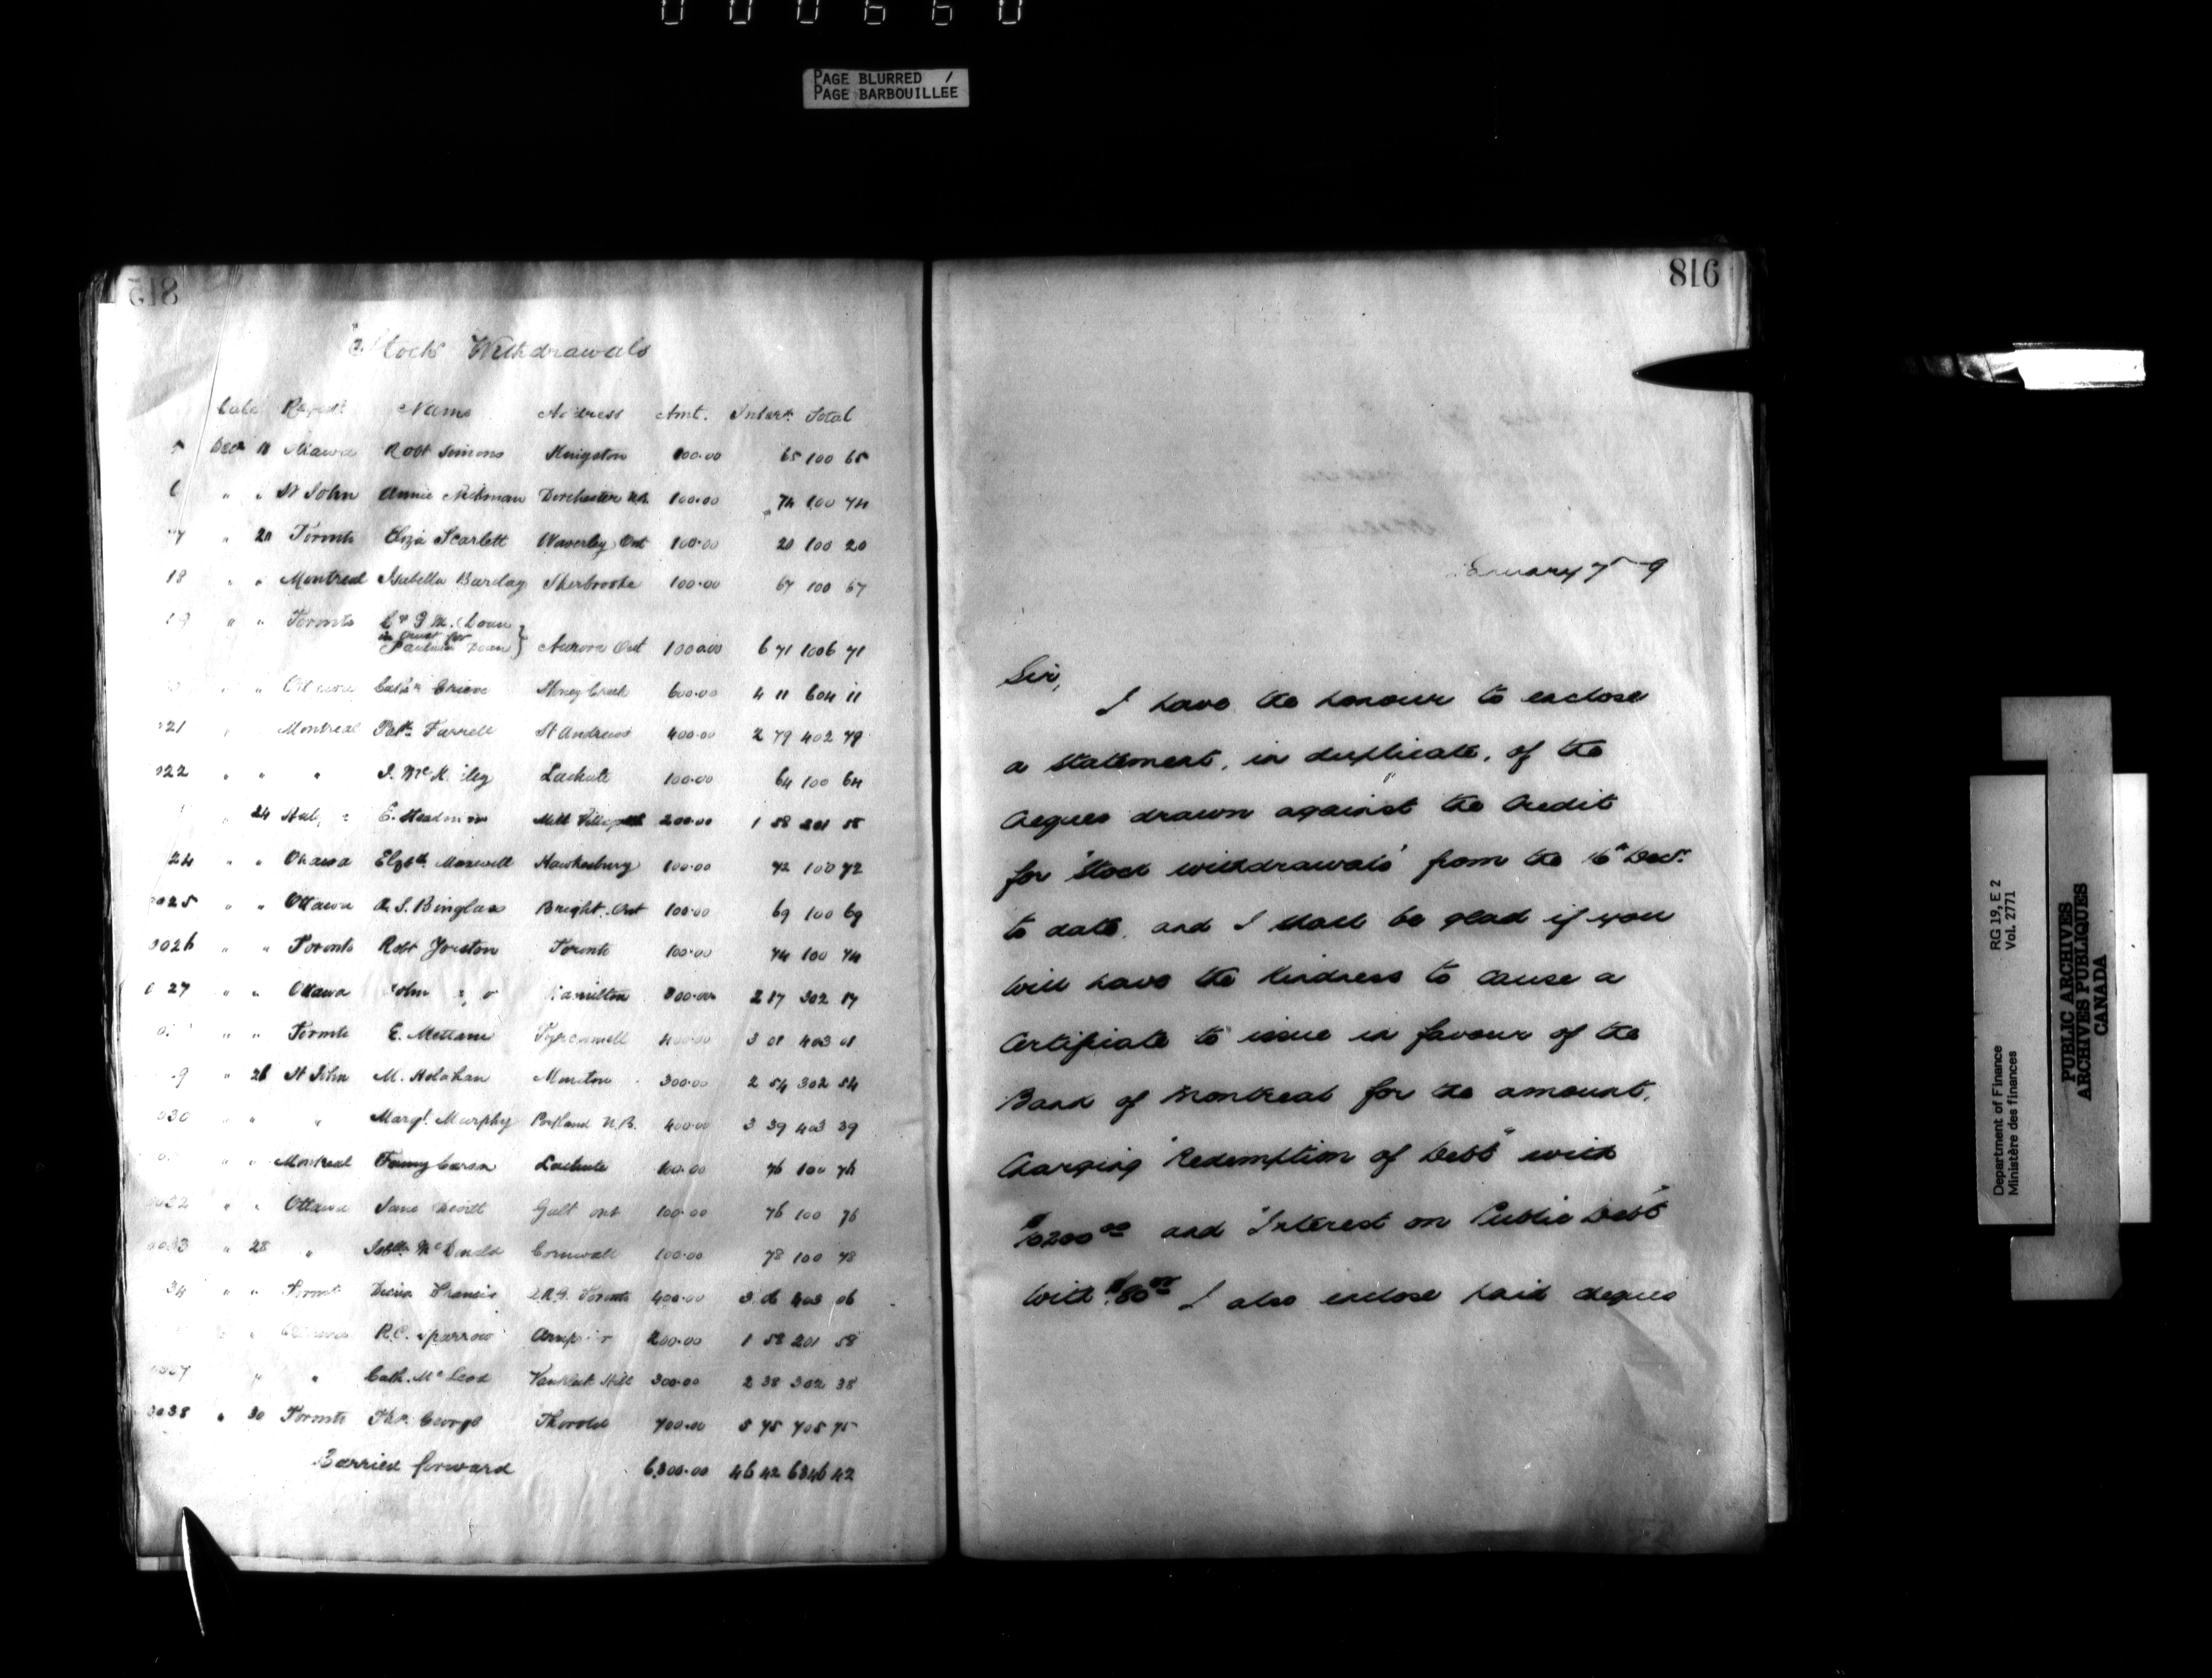 000660
PAGE BLURRED /
PAGE BARBOUILLÉE
815
Stock Withdrawals
Date Name Address Amt. Interst Total
Decr 18 Ottawa Robt Simons Kingston 100.00 65 100 65
6 " " St John Annie Dorchester N.B. 100.00 74 100 74
17 " 20 Toronto Eliza Scarlett Waverley Ont 100.00 20 100 20
18 " " Montreal Isabella Barclay Sherbrooke 100.00 67 100 67
19 " " Toronto
in trust for
Doan } Aurora Ont 1000.00 6 71 1006 71
" " Ottawa Grieve Stoney Creek 600.00 4 11 604 11
021 " Montreal Patk Farrell St Andrews 400.00 2 79 402 79
022 " " " Lachute 100.00 64 100 64
" 24 E. Mill Village 200.00 1 58 201 58
24 " " Ottawa Elzbth Maxwell Hawkesbury 100.00 72 100 72
0025 " " Ottawa Bright. Ont 100.00 69 100 69
0026 " " Toronto Robt Yorston Toronto 100.00 74 100 74
0 27 " " Ottawa John Hamilton 300.00 2 17 302 17
" " Toronto E. Tyrconnell 400.00 3 01 403 01
9 " 26 St John M. Holahan Moncton 300.00 2 54 302 54
030 " " " Margt. Murphy Portland N.B. 400.00 3 39 403 39
" " Montreal Fanny Lachute 100.00 76 100 76
0032 " " Ottawa Jane Devitt Galt Ont 100.00 76 100 76
0033 " 28 " McDonald Cornwall 100.00 78 100 78
34 " " Toronto Francis Toronto 400.00 3 06 403 06
" Ottawa R.C. Sparrow Arnprior 200.00 1 58 201 58
" " Cath. McLeod Vankleek Hill 300.00 2 38 302 38
0038 " 30 Toronto Thos. George Thorold 700.00 5 75 705 75
Carried forward 6,300.00 46 42 6346 42
816
January 7 9
Sir,
I have the honour to enclose
a statement, in duplicate, of the
cheques drawn against the Credit
for "Stock withdrawals" from the 16th Decr.
to date, and I shall be glad if you
will have the kindness to cause a
Certificate to issue in favour of the
Bank of Montreal for the amount,
Charging "Redemption of Debt" with
$10200.00 and "Interest on Public Debt"
with I also enclose paid cheques
Department of Finance RG 19, E 2
Ministère des finances Vol. 2771
PUBLIC ARCHIVES
ARCHIVES PUBLIQUES
CANADA